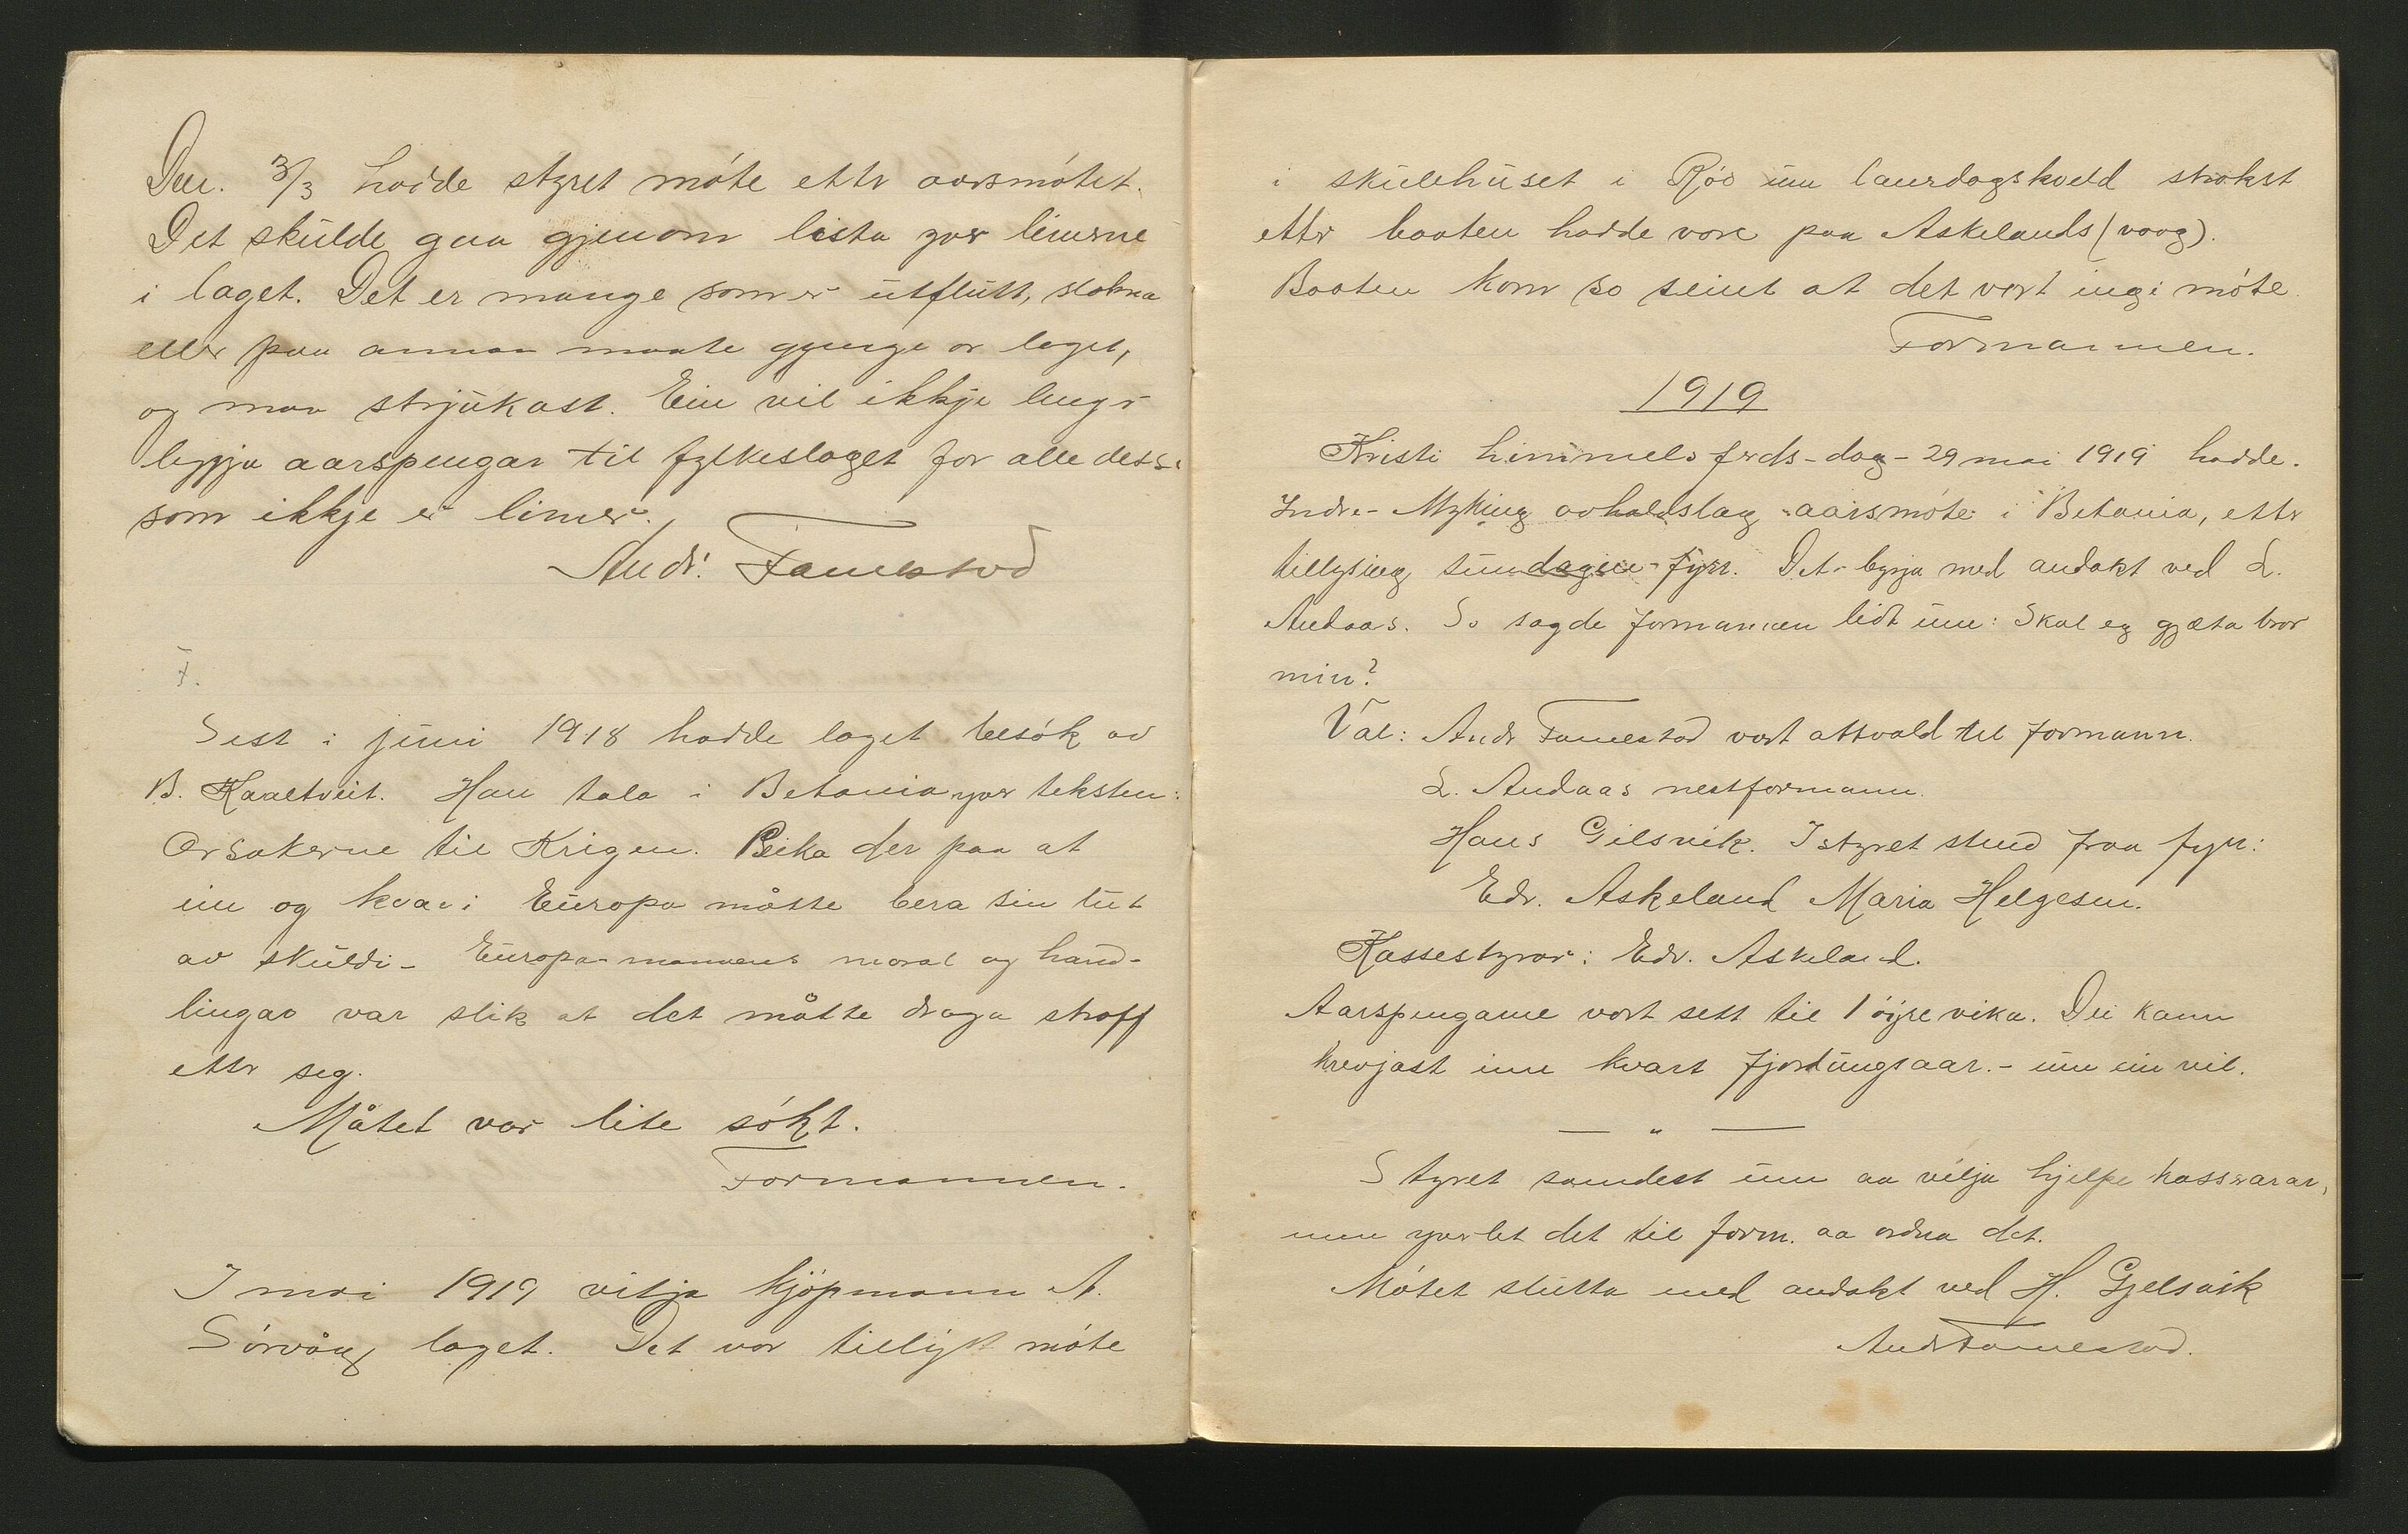 Den. 3/3 hadde styret móte ettr aarsmótet.
Det skŭlde gaa gjenom lista yver limerne
i laget. Det er mange som er ŭtflŭtt, slokna
eller paa annan maate gjenge or laget,
og maa strjŭkast. Ein vil ikkje lengr
leggja aarspengar til fylkeslaget for alle desse
som ikkje er limer.
Andr. Famestad
F.
Sest i jŭni 1918 hadde laget besók av
B. Kaaltveit. Han tala i Betania yver teksten:
Orsakerne til Krigen. Peika der paa at
ein og kvar i Eŭropa måtte bera sin lŭt
av skŭldi - Eŭropa-mannens moral og hand-
lingar var slik at det måtte draga straff
ettr seg.
Måtet var lite sókt.
Formannen.
I mai 1919 vitja kjöpmann A.
Sórvåg laget. Det var tillyst móte
i skŭlehŭset i Rjóó ŭm laurdagskveld strakst
ettr baaten hadde vore paa Askelands (vaag).
Baaten kom so seint at det vart ingi móte.
Formannen.
1919
Kristi himmelsferds-dag - 29 mai 1919 hadde
Indre-Myking avhaldslag aarsmóte i Betania, ettr
tillysing sŭndagen fyrr. Det byrja med andakt ved L.
Andaas. So sagde formannen lidt ŭm: Skal eg gjæta bror
min?
Val: Andr Famestad vart attvald til formann.
L. Andaas nestformann.
Hans Gilsvik. I styret stend fraa fyrr:
Edv. Askeland Maria Helgesen.
Kassestyrar: Edv. Askeland.
Aarspengane vart sett til 1 öyre vika. Dei kann
krevjast inn kvart fjordŭngsaar. - ŭm ein vil.
— " —
Styret samdest ŭm aa vilja hjelpe kasseraren,
men yverlet det til form. aa ordna det.
Mótet slŭtta med andakt ved H. Gjelsvik
Andr Famestad.